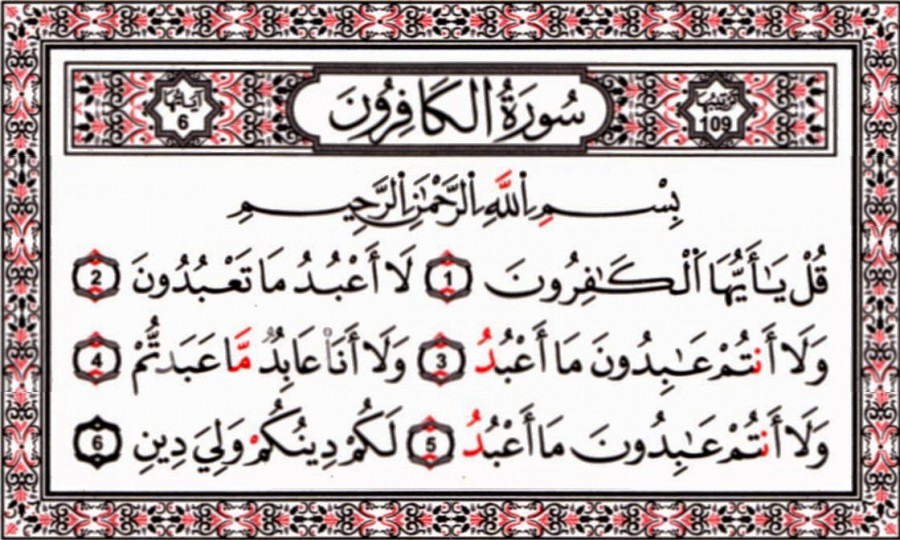 ترتيبها 109 سُورَةُ الكَافِرُونَ آياتها 6
بِسْمِ اللَّهِ الرَّحْمَٰنِ الرَّحِيمِ
قُلْ يَـٰٓأَيُّهَا ٱلْكَـٰفِرُونَ 1 لَا أَعْبُدُ مَا تَعْبُدُونَ 2
وَلَا أَنتُمْ عَـٰبِدُونَ مَا أَعْبُدُ 3 وَلَا أَنَا۠ عَابِدٌ مَّا عَبَدتُّمْ 4
وَلَا أَنتُمْ عَـٰبِدُونَ مَا أَعْبُدُ 5 لَكُمْ دِينُكُمْ وَلِيَ دِينِ 6